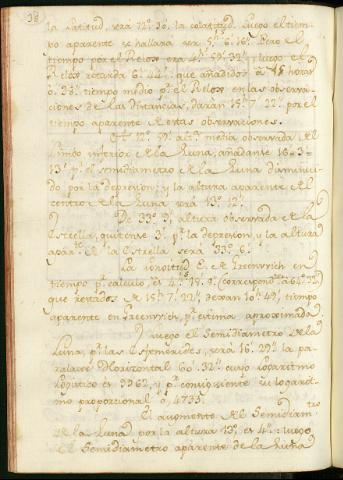 38
la Latitud, será 72º 30' la colatitud. luego el tiem-
po aparente se hallará ser 5h 6' 16". Pero el
tiempo por el Relox era 4h 59' 32"; luego el
Relox retarda 6' 44" que añadidos a 15 horas
0' 38" tiempo medio pr. el Relox en las observa-
ciones de las distancias, darán 15h 7' 22" por el
tiempo aparente de estas observaciones.
12º 59' altª media observada del
Limbo inferior de la Luna, añadanse 16'
13" pr. el semidiametro de la Luna disminui-
do por la depresion; y la altura aparente del
centro de la Luna será 13º 12'.
De 33º 9' altura observada de la
Estrella, quitense 3' pr. la depresion, y la altura
apar.te de la Estrella será 33º 6'.
La longitud E. de Greenwich en
tiempo pr. calculo, es 4h
que restados de 15h 7' 22" dexan 10h 49' tiempo
aparente en Greenwich, pr. estima aproximada.
luego el Semidiametro de la
Luna, pr. las Efemerides, será 16' 29" la pa-
ralaxe Horizontal 60' 32" cuyo logaritmo
Logistico es 9962, y pr. consiguiente su logarit-
mo proporcional 0,4733.
El augmento del Semidiam.tro
de la Luna por la altura 13º es 4": luego
el Semidiametro aparente de la Luna